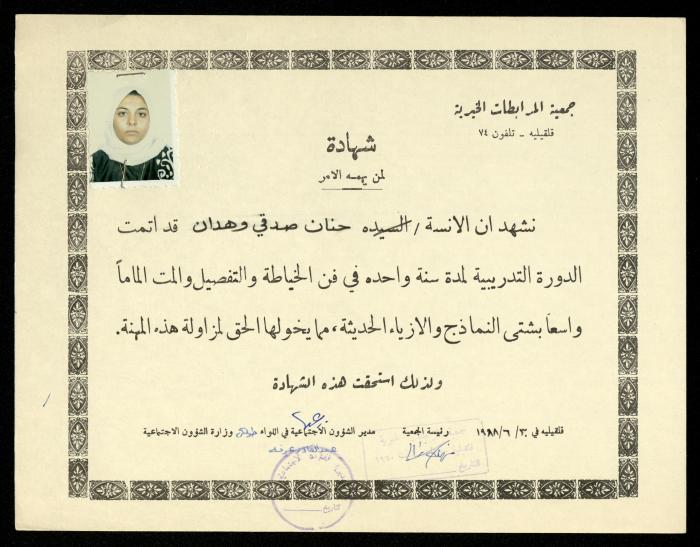 جمعية المرابطات الخيرية
قلقيليه - تلفون ٧٤
شهادة
لمن يهمه الامر
نشهد ان الانسة / السيده حنان صدقي وهدان قد اتمت
الدورة التدريبية لمدة سنة واحده في فن الخياطة والتفصيل والمت الماماً
واسعاً بشتى النماذج والازياء الحديثة، مما يخولها الحق لمزاولة هذه المهنة.
ولذلك استحقت هذه الشهادة
قلقيليه في ٣٠ / ٦ / ١٩٨٨ رئيسة الجمعية مدير الشؤون الاجتماعية في اللواء وزارة الشؤون الاجتماعية
التاريخ
تاريخ